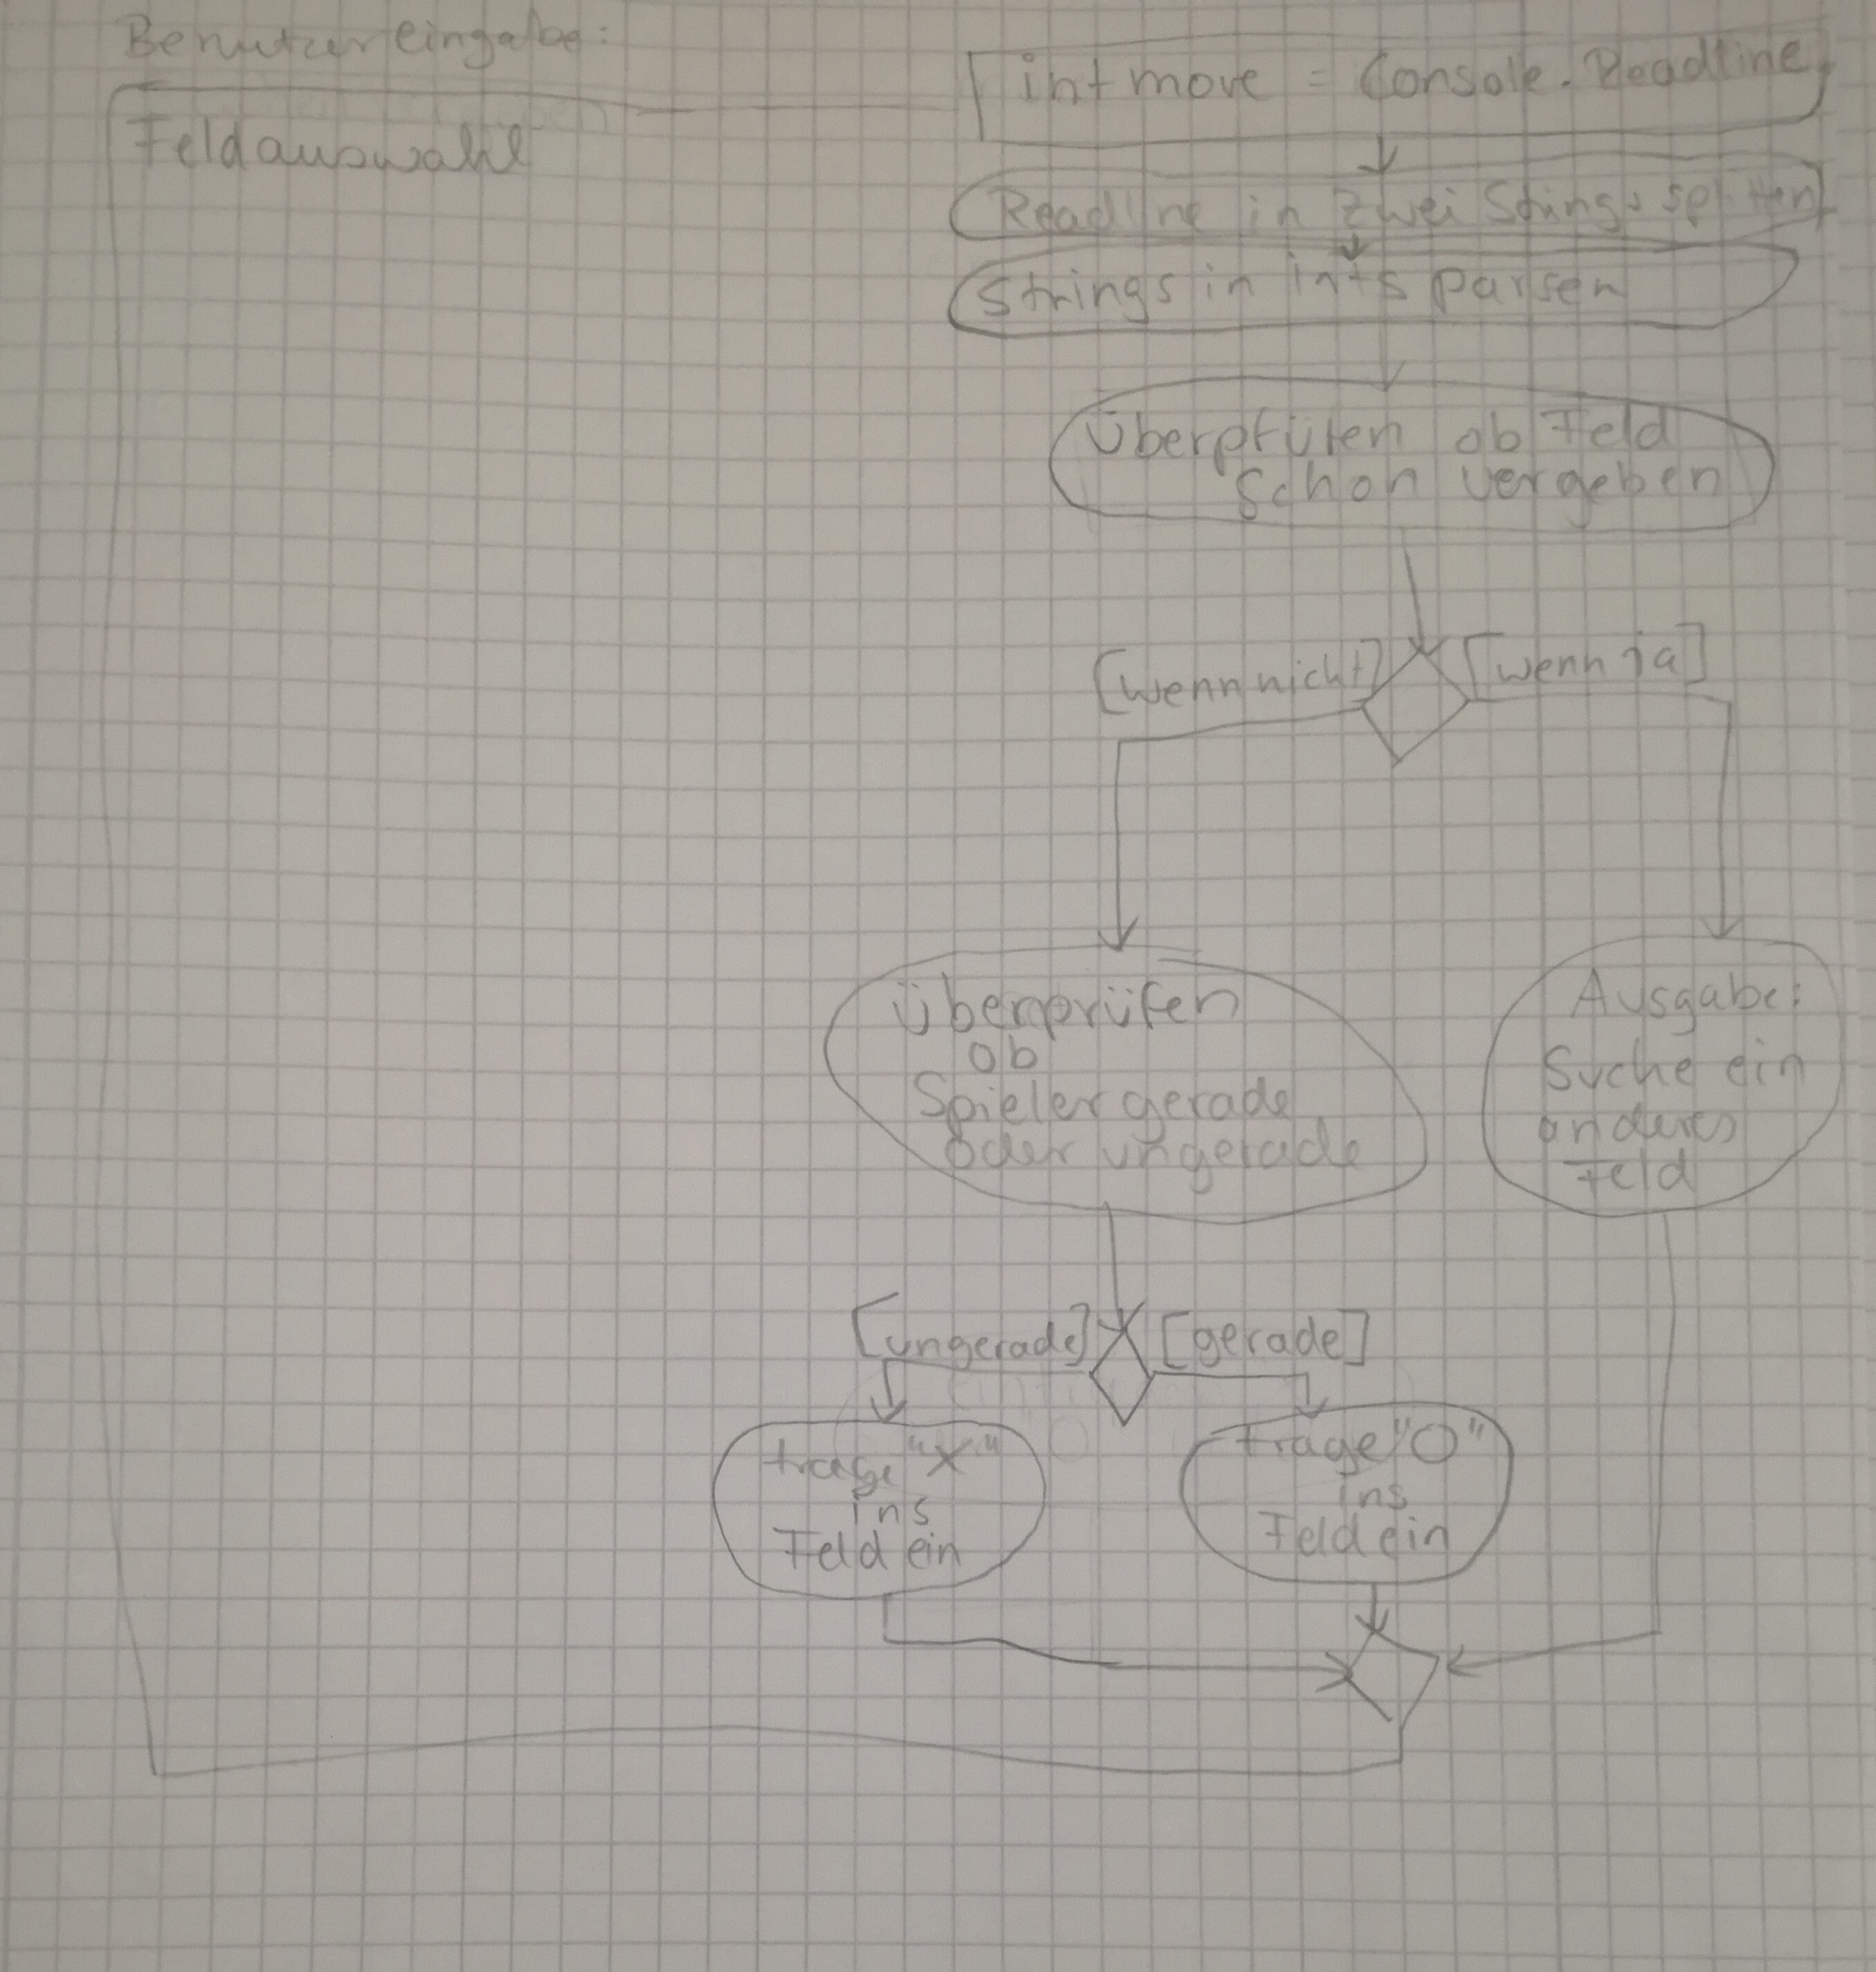 Benutzereingabe:
Feldauswahl
int move = Console.Readline;
Readline in zwei Strings splitten
Strings in ints parsen
Überprüfen ob Feld
schon vergeben
[wenn nicht] [wenn ja]
Überprüfen
ob
Spieler gerade
oder ungerade
Ausgabe:
Suche ein
anderes
Feld
[ungerade] [gerade]
trage "X"
ins
Feld ein
trage "O"
ins
Feld ein